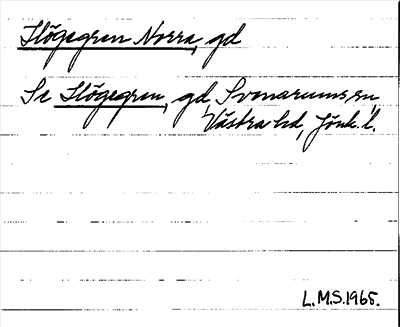 Högegren Norra, gd
Se Högegren, gd, Svenarums sn,
Västra hd, Jönk. l.
L.M.S. 1965.